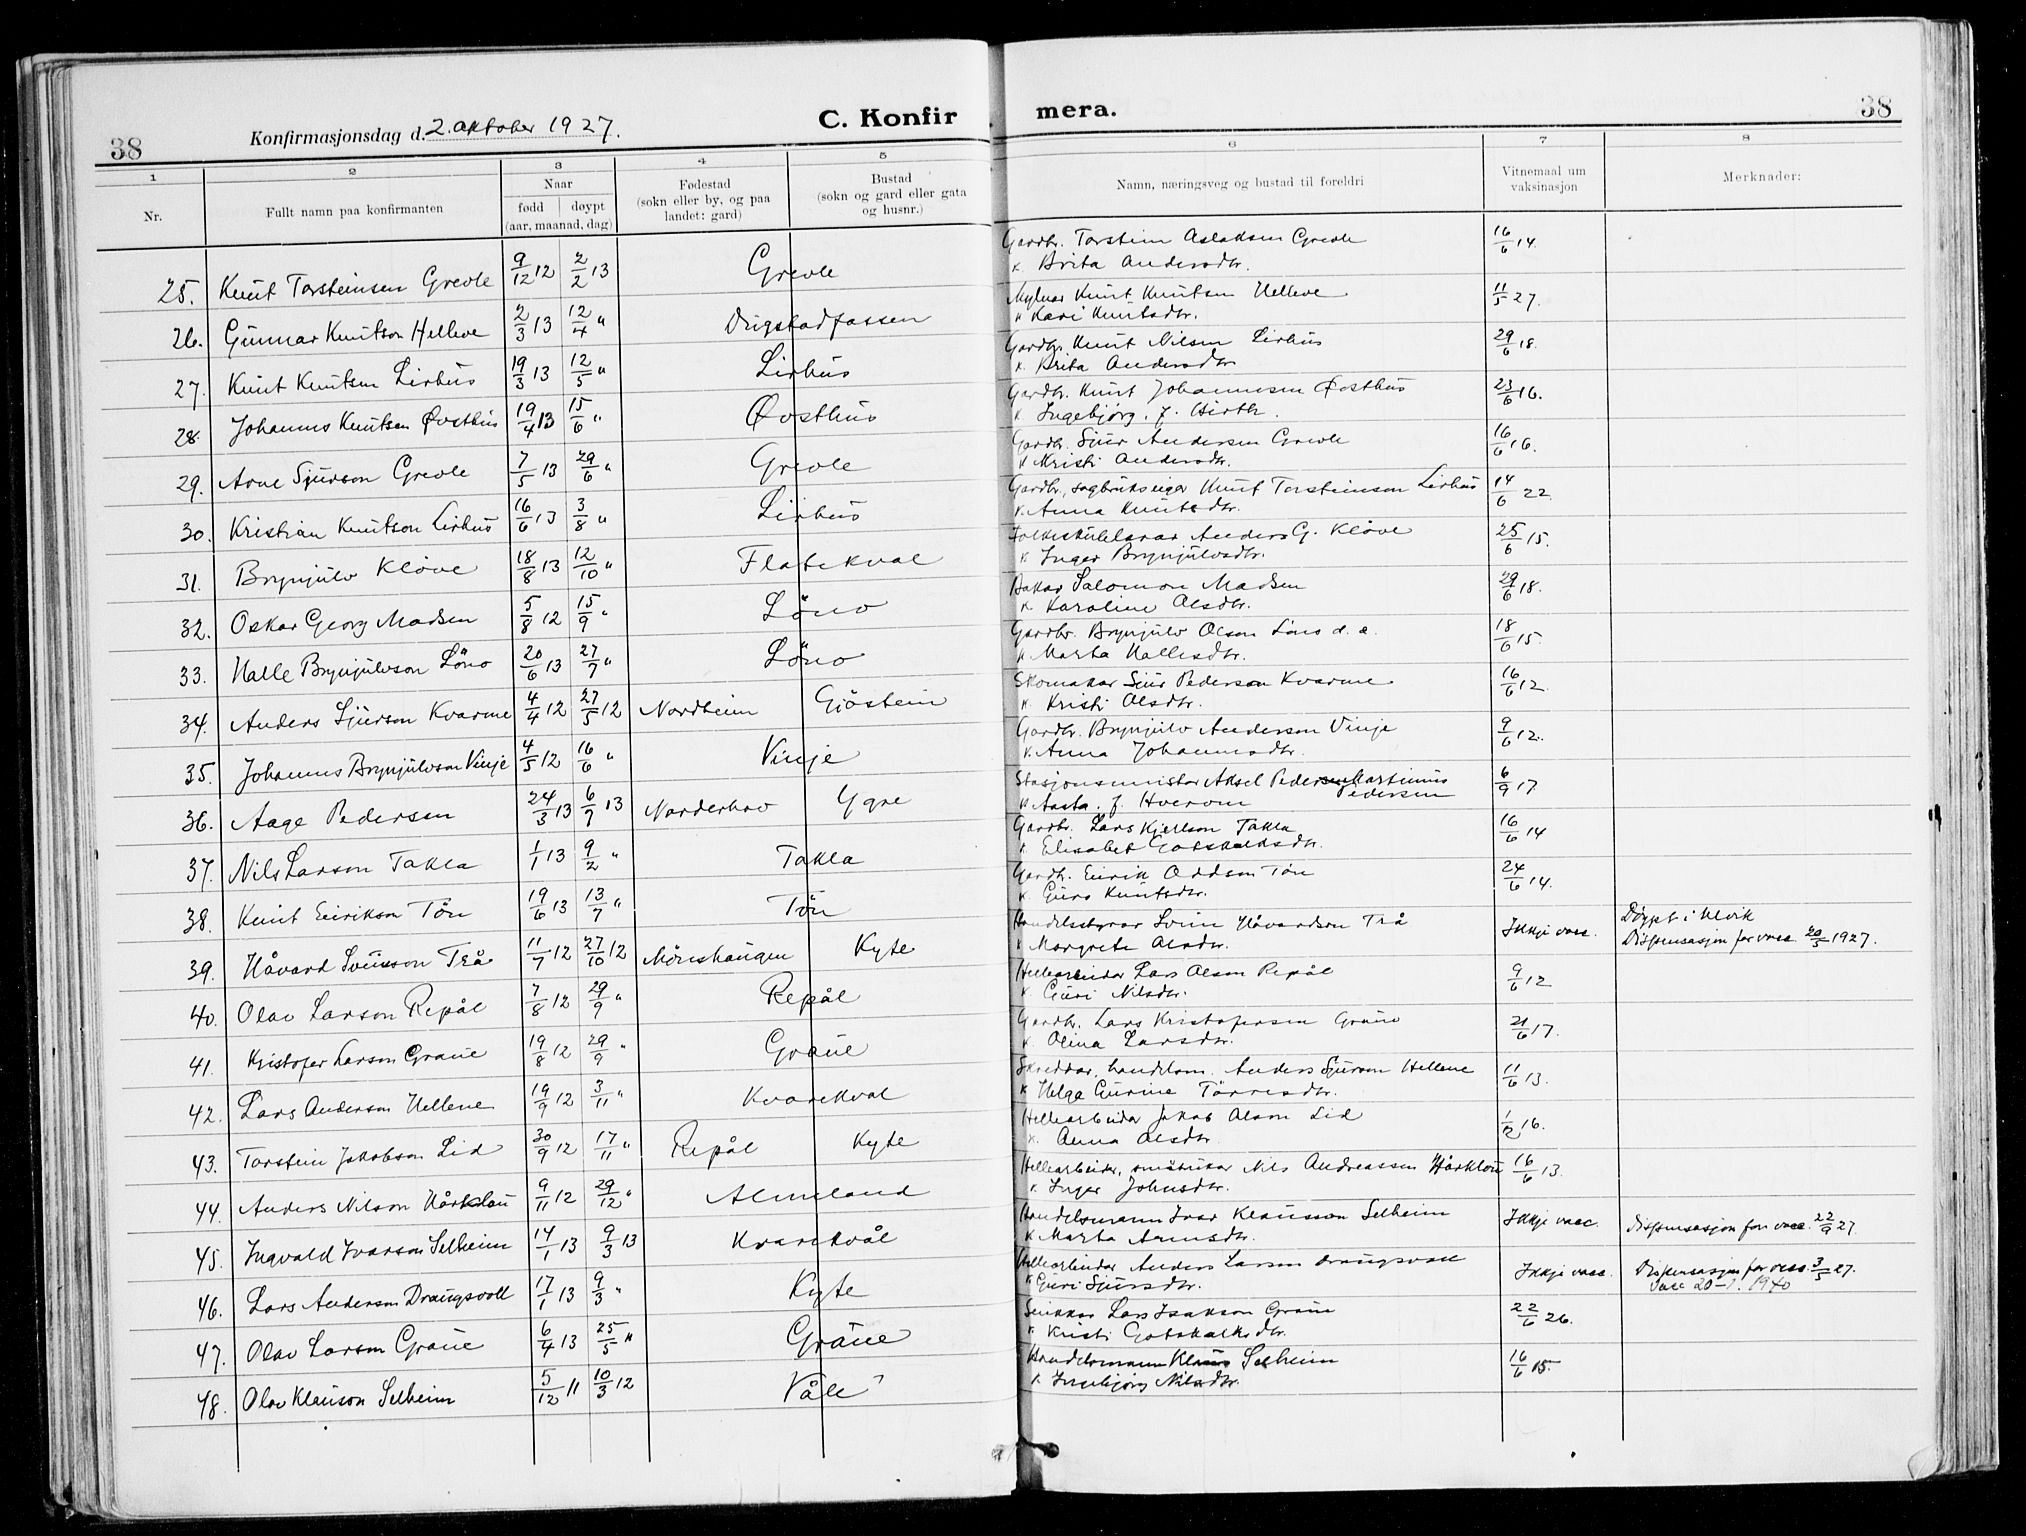 38 Konfirmasjonsdag d. 2. oktober 1927. C. Konfir mera. 38
1 2 3 4 5 6 7 8
Nr. Fullt namn paa konfirmanten Naar fødd døypt (aar, maanad, dag) Fødestad (sokn eller by, og paa landet: gard) Bustad (sokn og gard eller gata og husnr.) Namn, næringsveg og bustad til foreldri Vitnemaal um vaksinasjon Merknader:
25. Knut Torsteinsen Grevle 9/12 12 2/2 13 Grevle Gardbr. Torstein Aslaksen Grevle 16/6 14.
K. Brita Andersdtr.
26. Gunnar Knutson Helleve 2/3 13 12/4 " Knut Knutsen Helleve 11/5 27.
K Kari Knutsdtr.
27. Knut Knutsen Lirhus 19/3 13 12/5 " Lirhus Gardbr. Knut Nilsen Lirhus 29/6 18.
K. Brita Andersdtr.
28. Johannes Knutsen Øvsthus 19/4 13 15/6 " Øvsthus Gardbr. Knut Johannesen Øvsthus 23/6 16.
K. Ingebjørg, f.
29. Arne Sjurson Grevle 7/5 13 29/6 " Grevle Gardbr. Sjur Andersen Grevle 16/6 16.
K Kristi Andersdtr.
30. Kristian Knutson Lirhus 16/6 13 3/8 " Lirhus Gardbr, sagbrukseigar Knut Torsteinson Lirhus 14/6 22
K. Anna Knutsdtr.
31. Brynjulv Kløve 18/8 13 12/10 " Flatekval Folkeskulelærar Anders G. Kløve 25/6 15.
K Inger Brynjulvsdtr.
32. Oskar Georg Madsen 5/8 12 15/9 " Löno Bakar Salomon Madsen 29/6 18.
K Karoline Olsdtr.
33. Halle Brynjulvson Löno 20/6 13 27/7 " Löno Gardbr. Brynjulv Olson Löno d. e. 18/6 15
K Marta Hallesdtr.
34. Anders Sjurson Kvarme 4/4 12 27/5 12 Nordheim Gjöstein Skomakar Sjur Pederson Kvarme 16/6 12
K. Kristi Olsdtr.
35. Johannes Brynjulvson Vinje 4/5 12 16/6 " Vinje Gardbr. Brynjulv Anderson Vinje 9/6 12.
K. Anna Johannesdtr.
36. Aage Pedersen 24/3 13 6/7 13 Norderhov Ygre Stasjonsmeister Aksel Martinius Pedersen 6/9 17
K Aasta. f.
37. Nils Larson Takla 1/1 13 9/2 " Takla Gardbr. Lars Kjellson Takla 16/6 14
K. Elisabet Gotskalksdtr.
38. Knut Eirikson Tön 19/6 13 13/7 " Tön Gardbr. Eirik Oddson Tön 24/6 14.
K Guro Knutsdtr.
39. Håvard Sveinson Trå 11/7 12 27/10 12 Möneshaugen Kyte Handelsstyrar Svein Håvardson Trå Ikkje vacc. Döypt i Ulvik
K Margrete Olsdtr. Dispensasjon for vacc. 20/5 1927.
40. Olav Larson Repål 7/8 12 29/9 " Repål Hellearbeidar Lars Olson Repål 9/6 12
K Guri Nilsdtr.
41. Kristofer Larson Graue 19/8 12 29/9 " Graue Gardbr. Lars Kristofersen Graue 21/6 17.
K. Olina Larsdtr.
42. Lars Anderson Hellene 19/9 12 3/11 " Kvarekval Skreddar, handelsm. Anders Sjurson Hellene 11/6 13.
K Helga Gurine Törresdtr.
43. Torstein Jakobson Lid 30/9 12 17/11 " Repål Kyte Hellearbeidar Jakob Olson Lid 1/12 16.
K. Anna Olsdtr.
44. Anders Nilson Hårklau 9/11 12 29/12 " Almeland Hellearbeidar, småbrukar Nils Andreassen Hårklau 16/6 13.
K Inger Johnsdtr.
45. Ingvald Ivarson Selheim 14/1 13 9/3 13 Kvarekvål Handelsmann Ivar Klausson Selheim Ikkje vacc. Dispensasjon for vacc. 22/9 27.
K Marta Arnesdtr.
46. Lars Anderson Draugsvoll 17/1 13 9/3 " Kyte Hellearbeidar Anders Larson Draugsvoll Ikkje vacc. Dispensasjon for vacc. 3/5 27.
K Guri Sjursdtr. Vacc 20-7. 1940
47. Olav Larson Graue 6/4 13 25/5 " Graue Snikkar Lars Isakson Graue 22/6 26.
K Kristi Gotskalksdtr.
48. Olav Klauson Selheim 5/12 11 10/3 12 Våle Handelsmann Klaus Selheim 16/6 15.
K. Ingebjörg Nilsdtr.